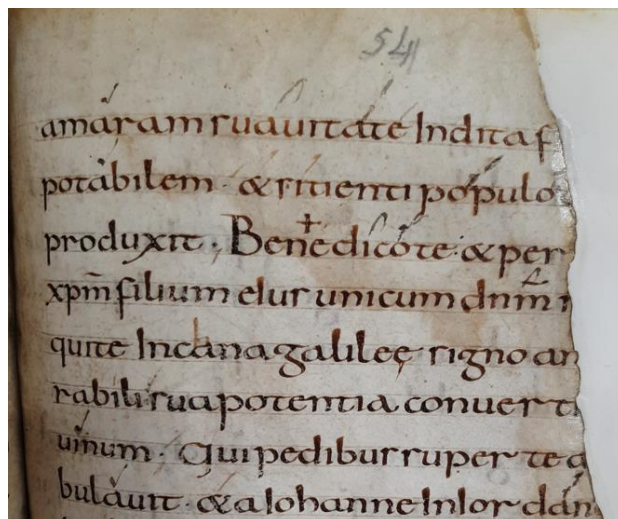 54
amaram suauitate Indita f
potabilem · & sitienti populo
produxit · Bene✝dico te · & per
xpm̄ filium eius unicum dnm̄ n
qui te In cana galileę signo am
rabili sua potentia conuerti
uinum · Qui pedibus super te a
bulauit · & a Iohanne In Iordan